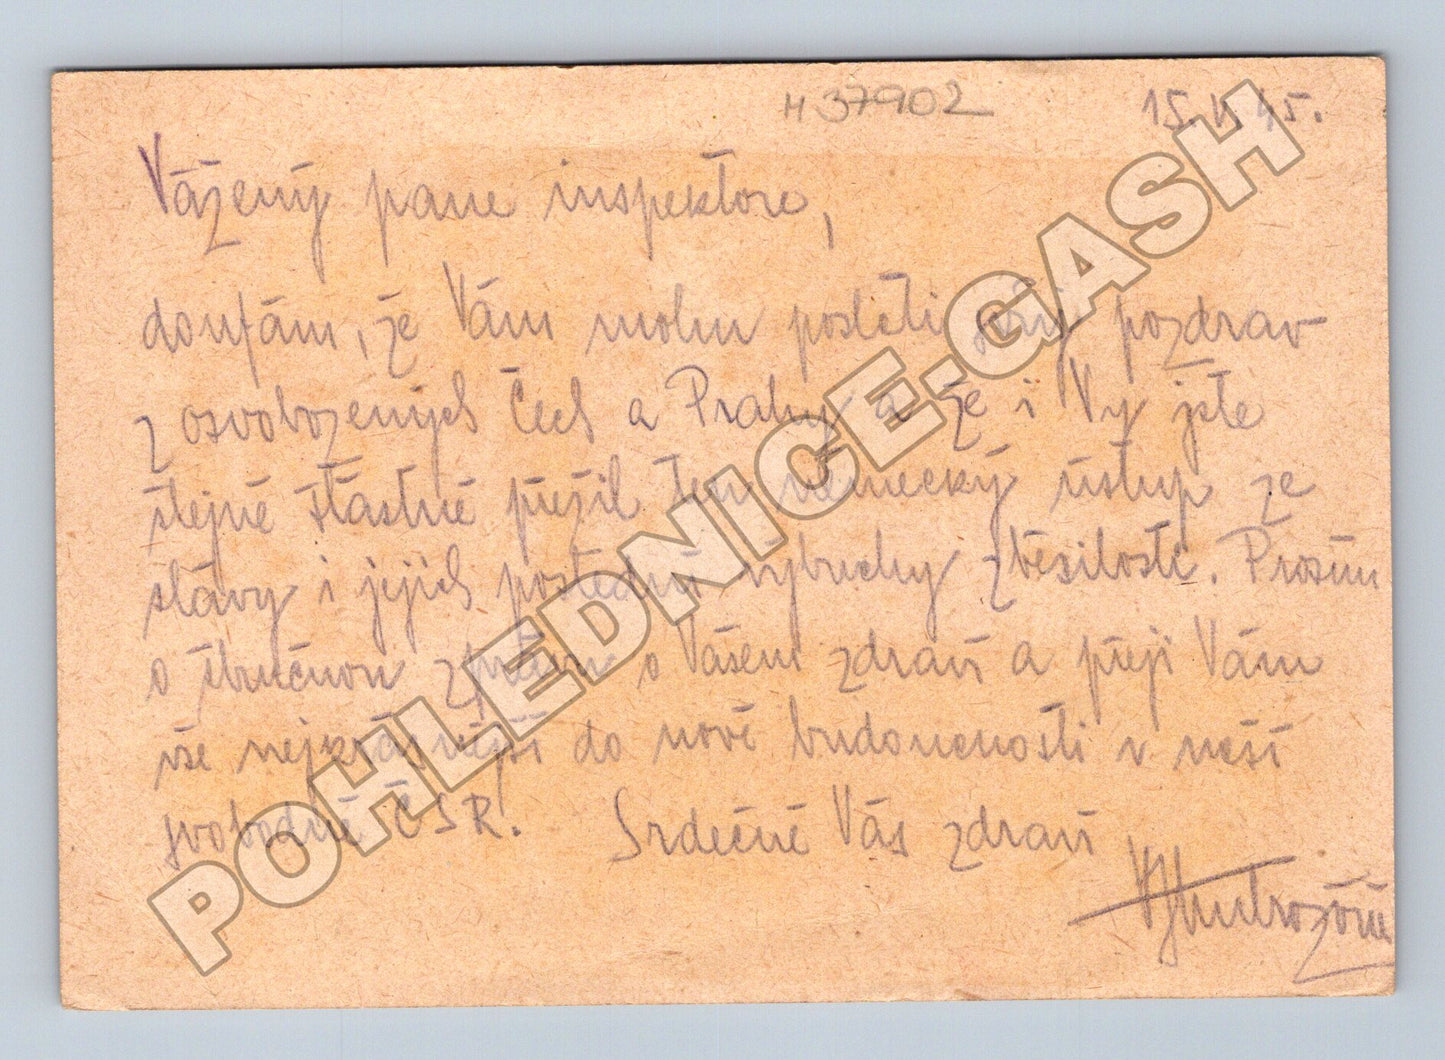 H 37902
15. V. 45.
Vážený pane inspektore,
doufám, že Vám mohu posleti pozdrav
z osvobozených Čech a Prahy a že i Vy jste
stejně šťastně přežil ten německý ústup ze
slávy i jejich poslední výbuchy zběsilosti. Prosím
o stručnou zprávu o Vašem zdraví a přeji Vám
vše nejkrásnější do nové budoucnosti v naší
svobodné ČSR! Srdečně Vás zdraví
POHLEDNICE.GASH